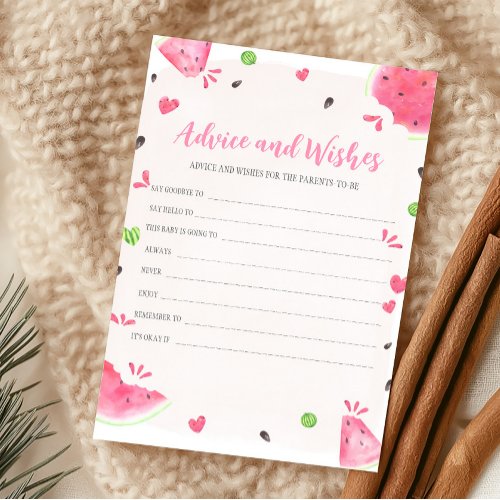 Advice and Wishes
ADVICE AND WISHES FOR THE PARENTS-TO-BE
SAY GOODBYE TO
SAY HELLO TO
THIS BABY IS GOING TO
ALWAYS
NEVER
ENJOY
REMEMBER TO
IT'S OKAY IF